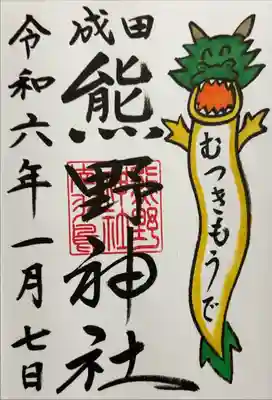 成田
熊野神社
むつきもうで
令和六年一月七日